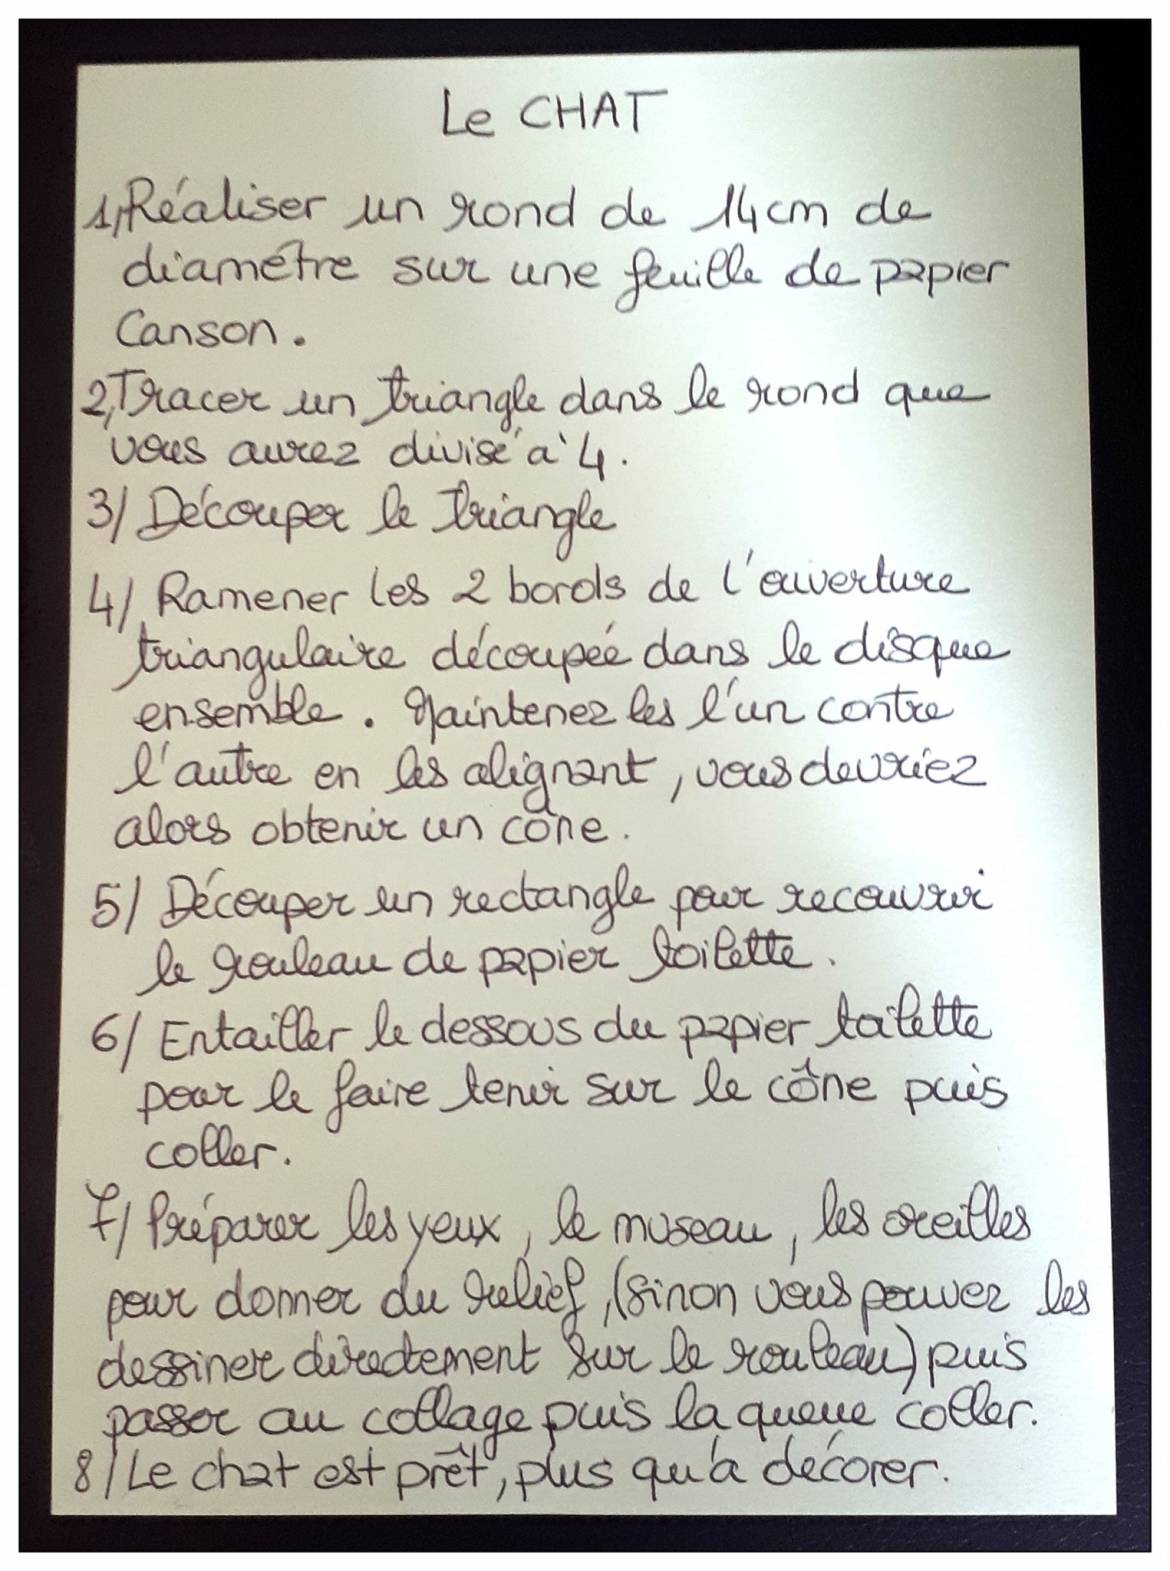 Le CHAT
1/ Réaliser un rond de 14cm de
diamétre sur une feuille de papier
Canson.
2/ Tracer un triangle dans le rond que
vous aurez divisé à 4.
3/ Découper le triangle
4/ Ramener les 2 bords de l'ouverture
triangulaire découpée dans le disque
ensemble. Maintenez les l'un contre
l'autre en les alignant, vous devriez
alors obtenir un cône.
5/ Découper un rectangle pour recouvrir
le rouleau de papier toilette.
6/ Entailler le dessous du papier toilette
pour le faire tenir sur le cône puis
coller.
7/ Préparer les yeux, le museau, les oreilles
pour donner du relief, (sinon vous pouvez les
dessiner directement sur le rouleau) puis
passer au collage puis la queue coller.
8/ Le chat est prêt, plus qu'à décorer.